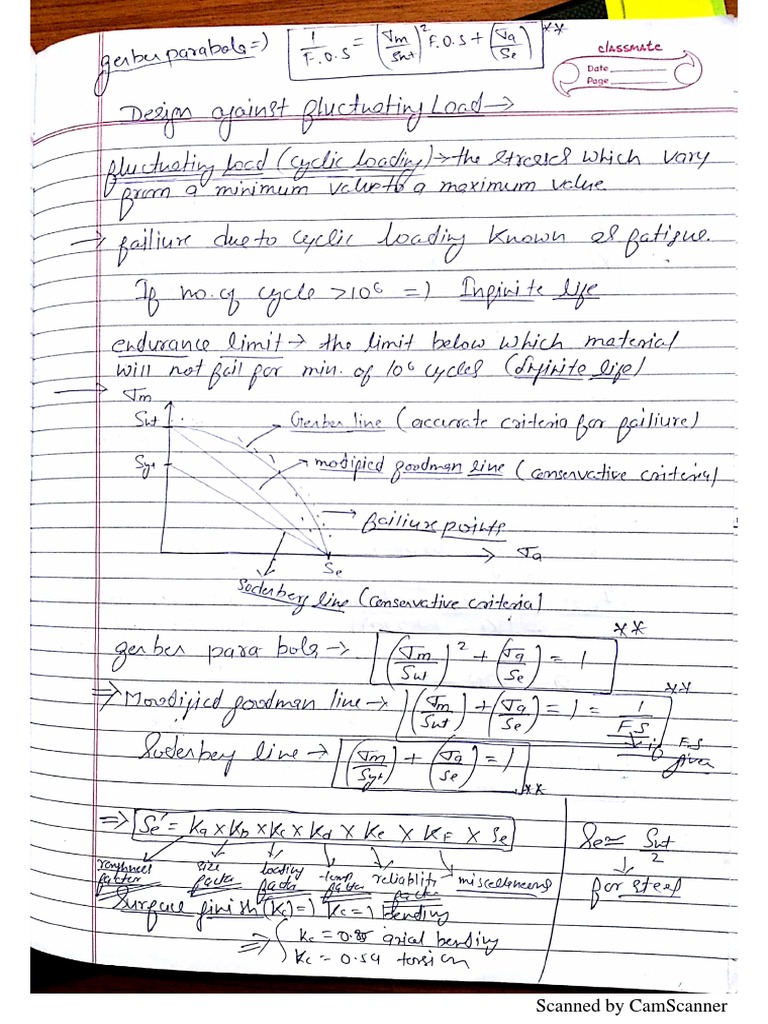 gerber parabola⇒) 1/F.O.S = (σm/Sut)² F.O.S + (σa/Se) **
classmate
Date
Page
Design against fluctuating Load→
fluctuating load (cyclic loading)→ the stresses which vary
from a minimum value to a maximum value.
→ failiure due to cyclic loading known as fatigue.
If no. of cycle > 10⁶ ⇒) Infinite life
endurance limit→ the limit below which material
will not fail for min. of 10⁶ cycles (Infinite life)
σm
Sut Gerber line (accurate criteria for failiure)
Syt modified goodman line (conservative criteria)
→ failiure points
Se → σa
Soderberg line (conservative criteria)
gerber parabola→ (σm/Sut)² + (σa/Se) = 1 **
⇒ Moodified goodman line→ (σm/Sut) + (σa/Se) = 1 = 1/F.S **
if F.S given
Soderbey line→ (σm/Syt) + (σa/Se) = 1 **
⇒ Se' = Ka × Kb × Kc × Kd × Ke × KF × Se
Se ≃ Sut/2
for steel
roughness factor size facto loading facto temp factor reliablity facto miscelleneous
Surface finish (Kc) =) Kc =) bending
⇒ { Kc = 0.85 axial bending
Kc = 0.59 torsion
Scanned by CamScanner